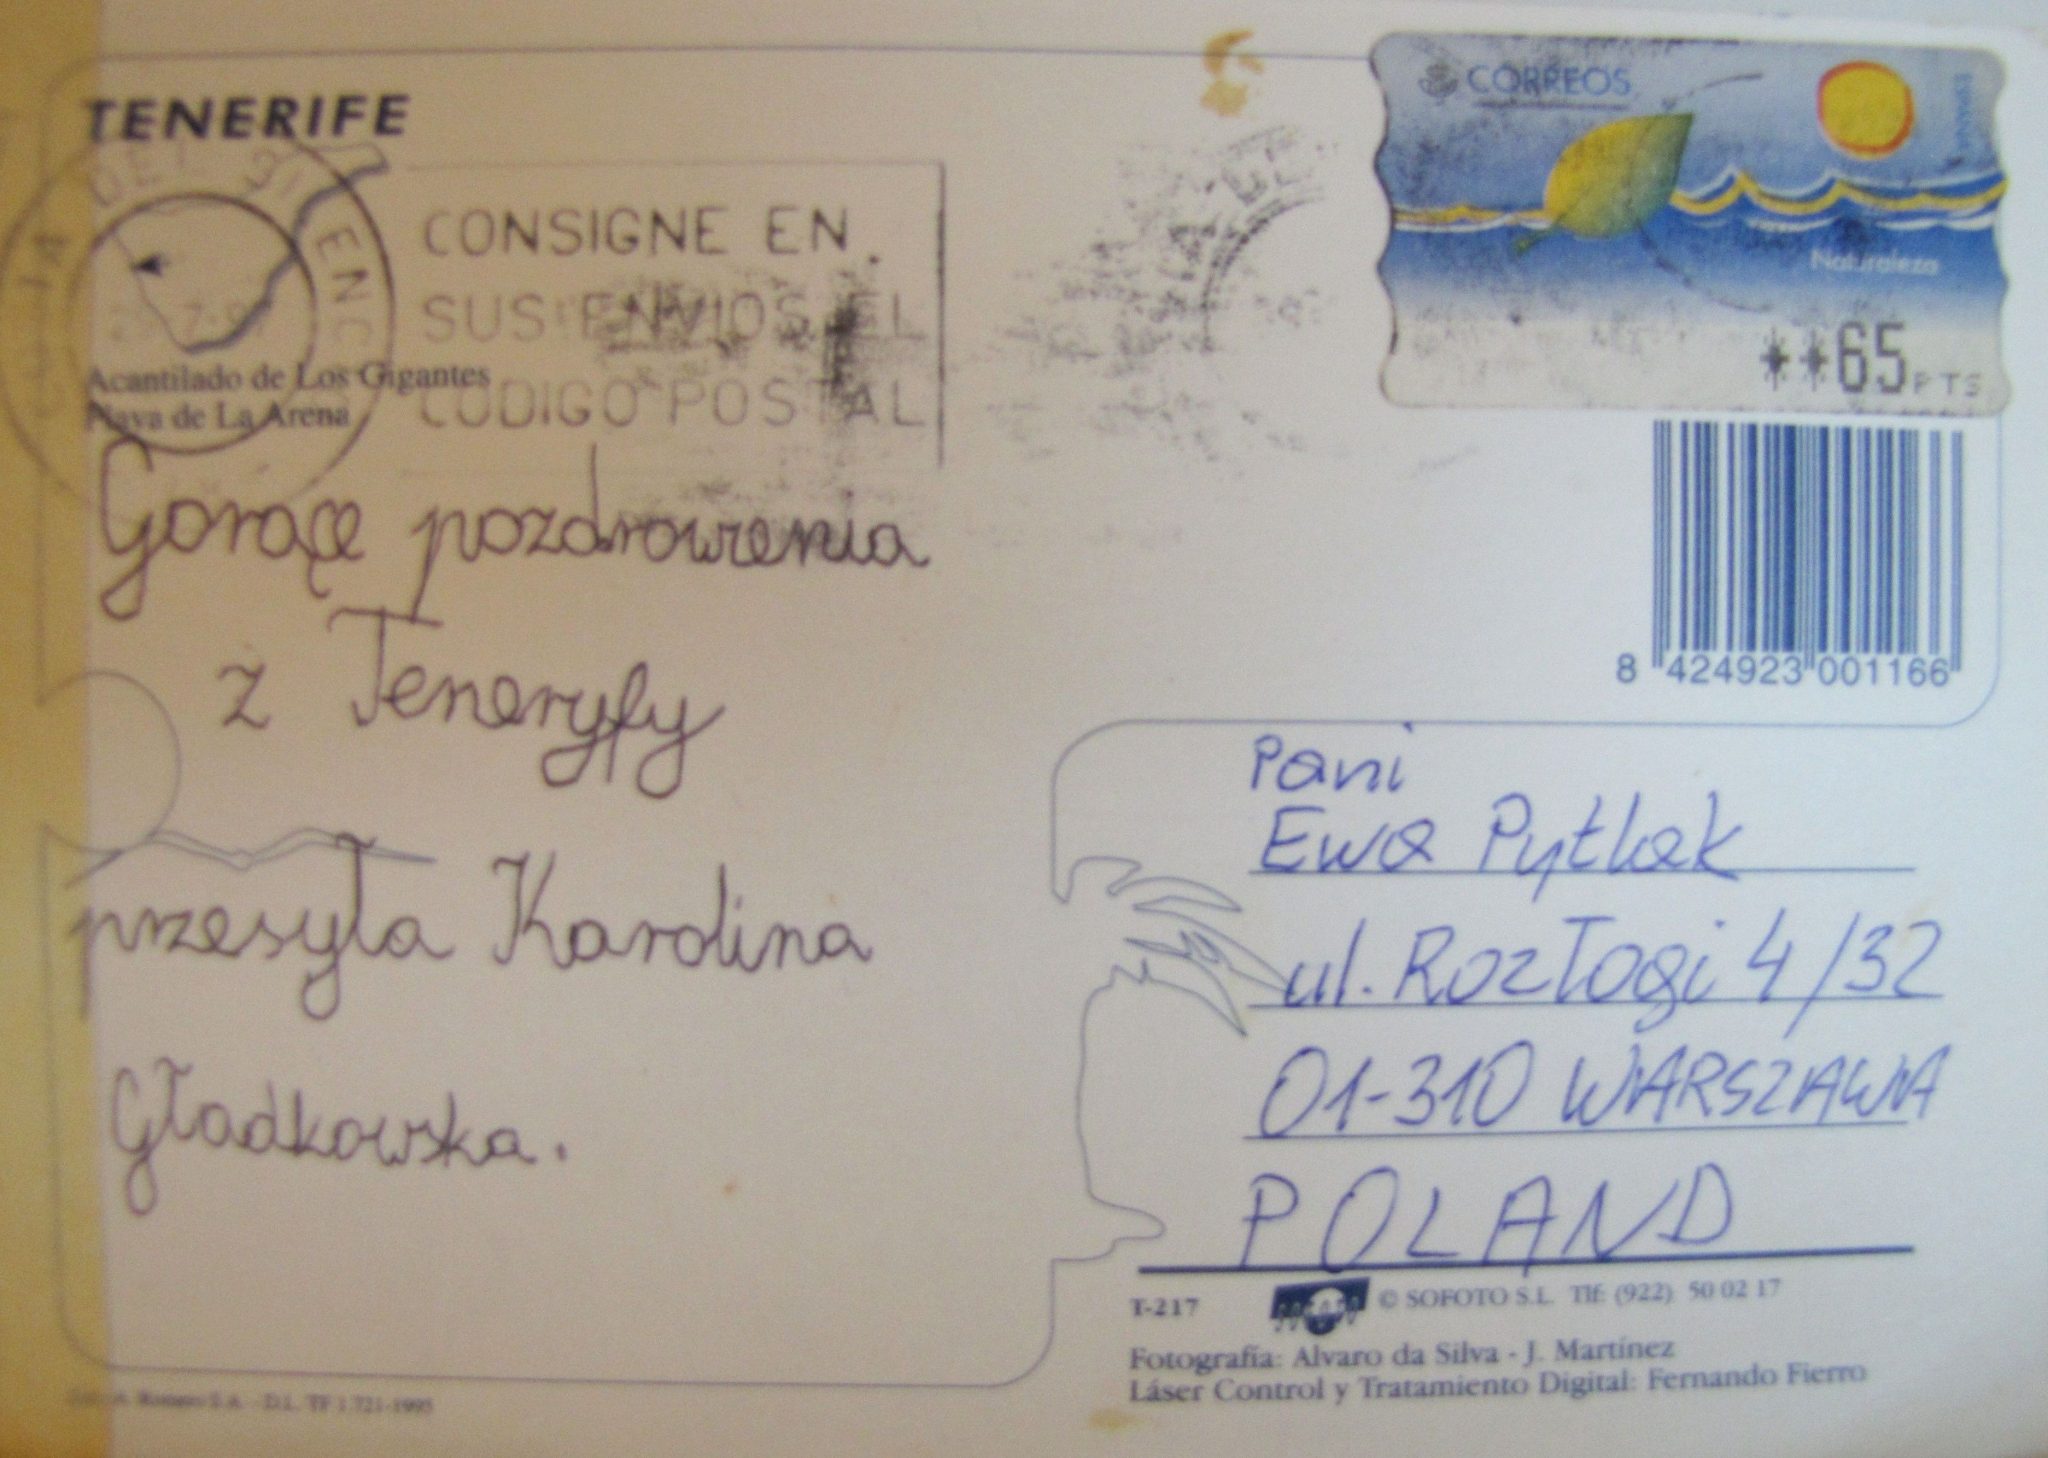 TENERIFE
CONSIGNE EN
SUS ENVIOS EL
CODIGO POSTAL
Acantilado de Los Gigantes
Playa de La Arena
Gorące pozdrowienia
z Teneryfy
przesyła Karolina
Gładkowska.
CORREOS
ESPAÑA
Naturaleza
**65 PTS
8 424923 001166
Pani
Ewa Pytlak
ul. Rozłogi 4/32
01-310 WARSZAWA
POLAND
T-217
SOFOTO
© SOFOTO S.L. Tlf: (922) 50 02 17
Fotografía: Alvaro da Silva - J. Martínez
Láser Control y Tratamiento Digital: Fernando Fierro
A. Romero S.A. - D.L. TF 1.721-1995